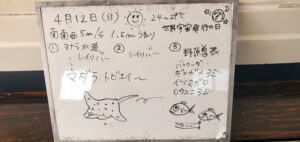 4月12日(日)
24〜28℃
世界宇宙飛行の日
南南西 5m/s 1.5mうねり
① ヨナラ水道
② レイリバー
③ 野原曽根
マダラ トビエイ〜
バラクーダ
ギンガメアジ
イソマグロ